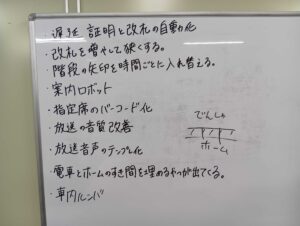 ・遅延証明と改札の自動化
・改札を増やして狭くする。
・階段の矢印を時間ごとに入れ替える。
・案内ロボット
・指定席のバーコード化
・放送の音質改善
・放送音声のテンプレ化
・電車とホームのすき間を埋めるやつが出てくる。
・車内ルンバ
でんしゃ
ホーム